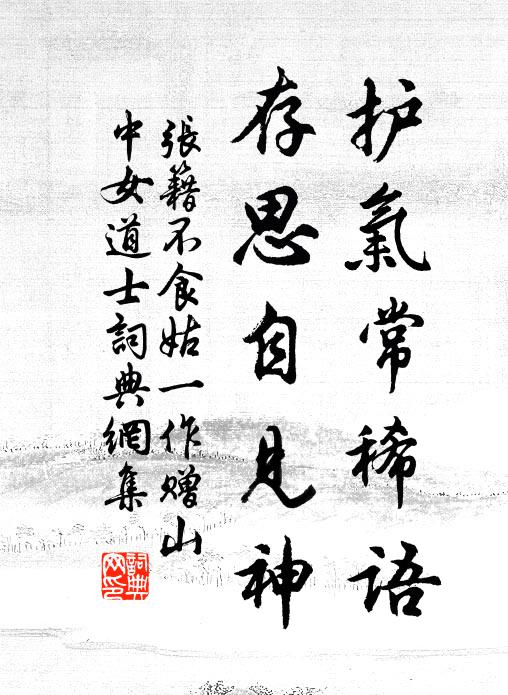 护氣常稀語
存思自見神
張籍不食姑一作赠山
中女道士詞典網集
詞典
网印